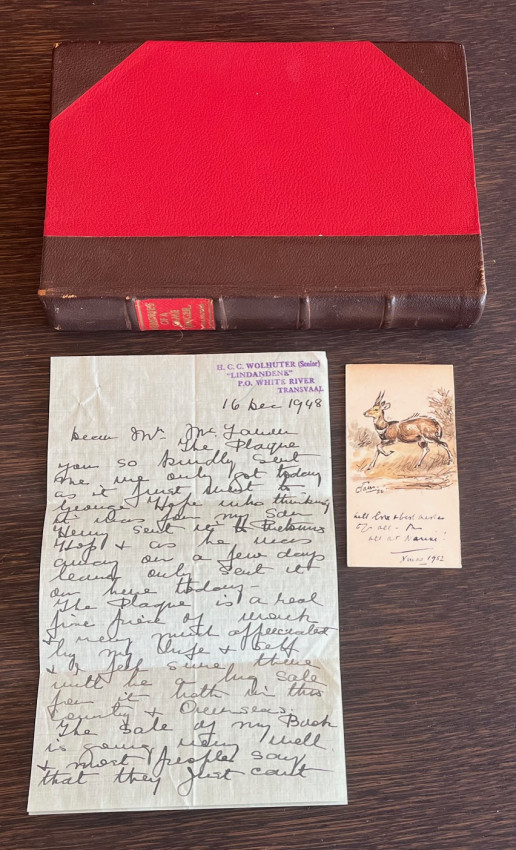 MEMORIES
OF A
GAME
RANGER
H. C. C. WOLHUTER (Senior)
"LINDANDENE"
P.O. WHITE RIVER
TRANSVAAL
16 Dec 1948
Dear Mr. Mc
The Plaque
you so kindly sent
me we only got today
as it first went to
George Hope who thinking
it was for my Son
Henry sent it to
& as he was
away on a few days
leave only sent it
on here today -
The Plaque is a real
fine piece of work
& very much appreciated
by my Wife & self
& I feel sure there
will be a big sale
for it both in this
Country & Overseas.
The Sale of my Book
is going very well
& most people say
that they just can't
with love & best wishes
to all
all at
Xmas 1952